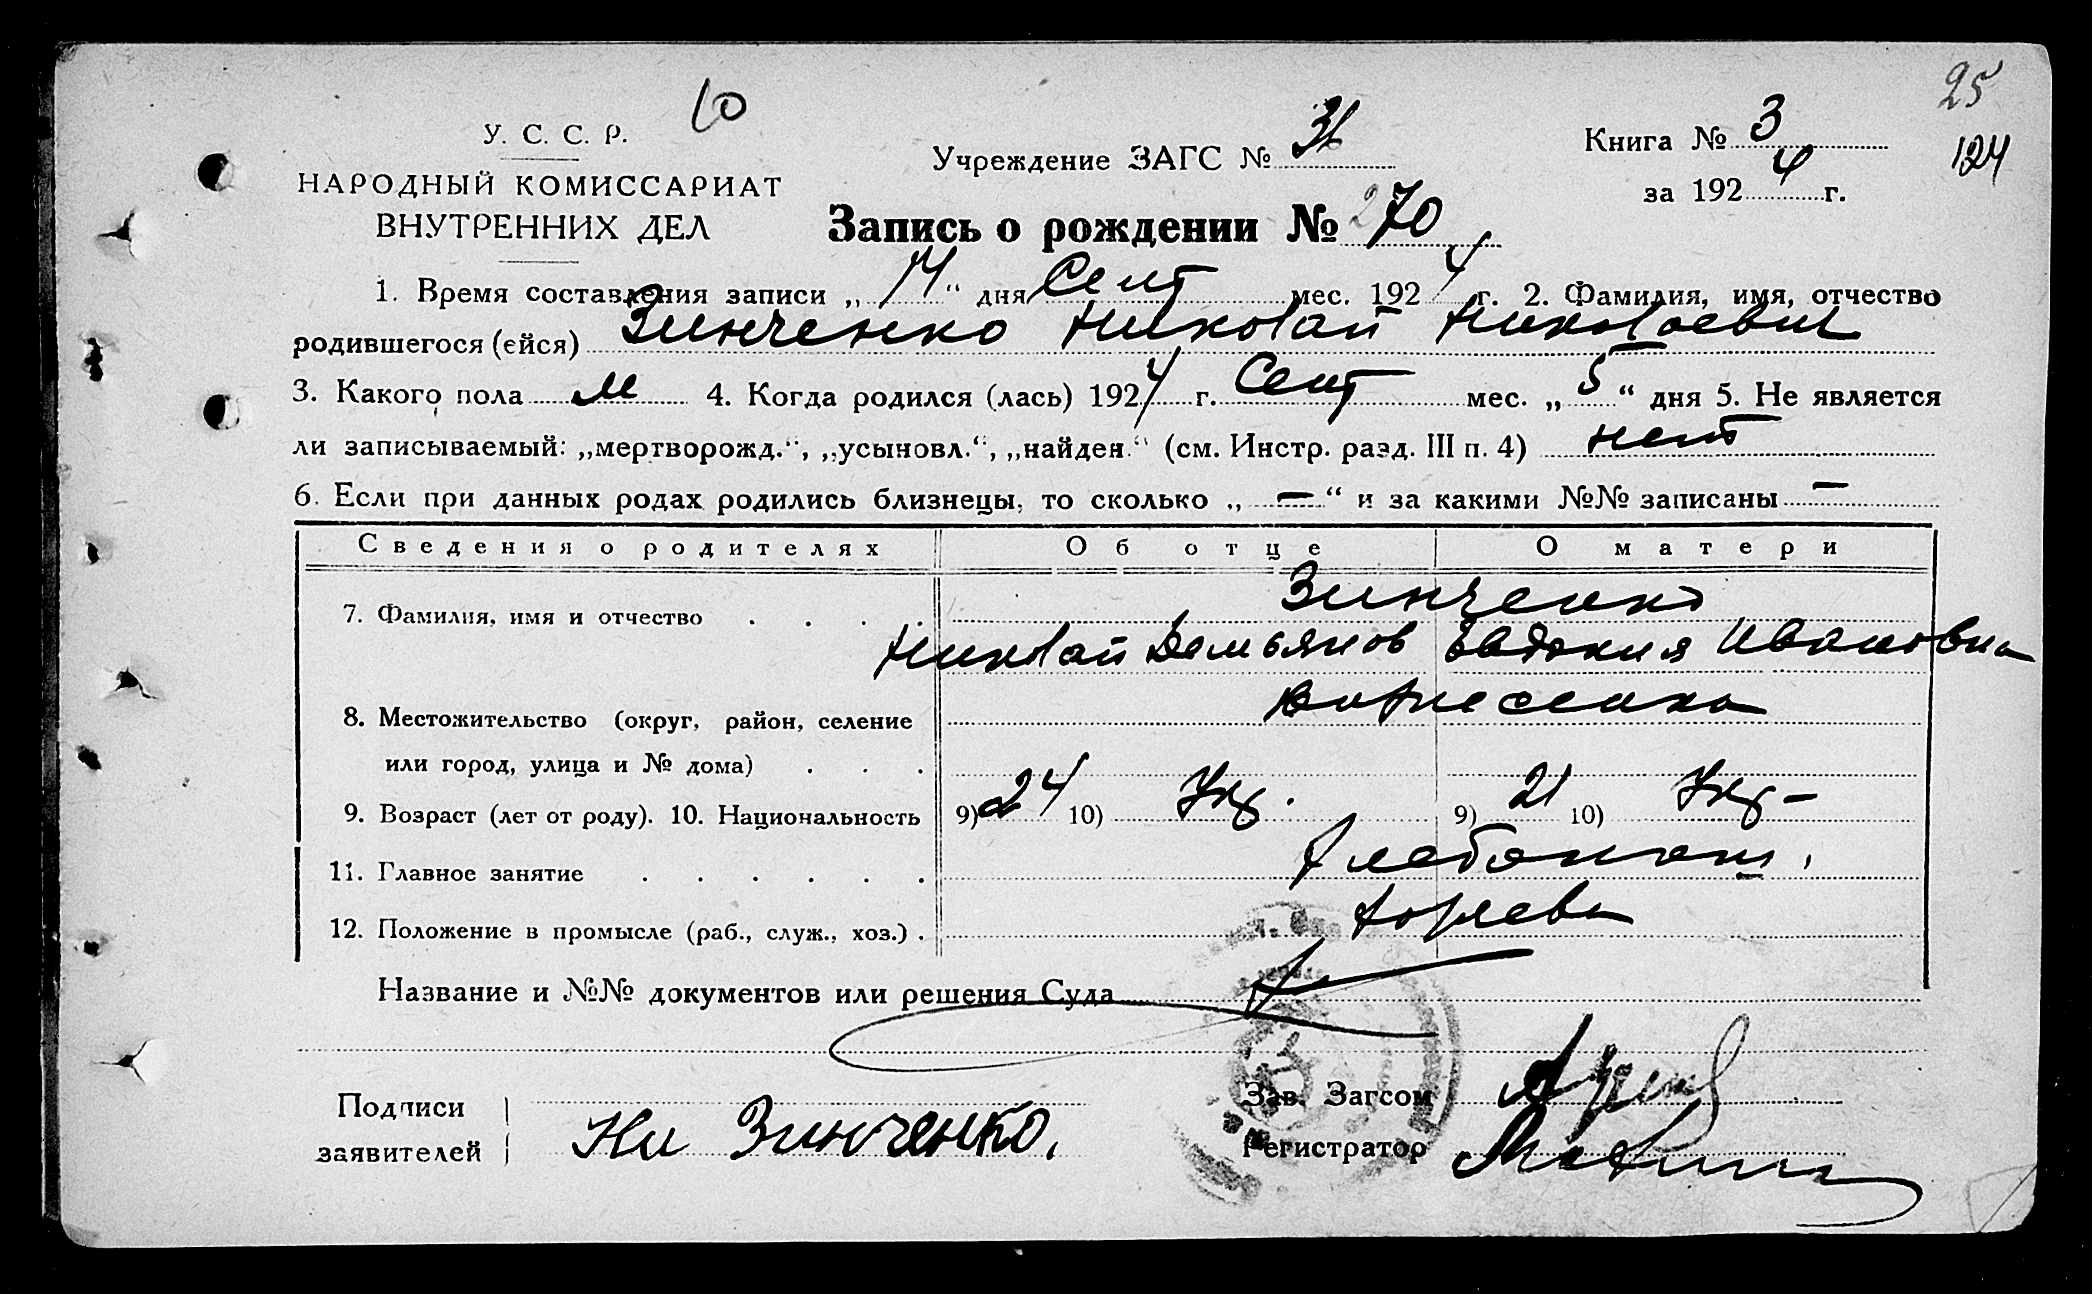 10
25
У. С. С. Р.
Учреждение ЗАГС №
Книга № 3
124
НАРОДНЫЙ КОМИССАРИАТ
за 192 4 г.
ВНУТРЕННИХ ДЕЛ
Запись о рождении № 270
1. Время составления записи „ 14 “ дня Сент мес. 192 4 г. 2. Фамилия, имя, отчество
родившегося (ейся) Зинченко Николай Николаевич
3. Какого пола м 4. Когда родился (лась) 192 4 г. Сент мес. „ 5 “ дня 5. Не является
ли записываемый: „мертворожд.“, „усыновл.“, „найден.“ (см. Инстр. разд. III п. 4) нет
6. Если при данных родах родились близнецы, то сколько „ — “ и за какими №№ записаны —
Сведения о родителях Об отце О матери
Зинченко
7. Фамилия, имя и отчество . . . .
Николай Демьянов Евдокия Ивановна
Вознесенка
8. Местожительство (округ, район, селение
или город, улица и № дома) . . .
9. Возраст (лет от роду). 10. Национальность 9) 24 10) Укр. 9) 21 10) Укр-
11. Главное занятие . . . . . . Хлебопаш.
12. Положение в промысле (раб., служ., хоз.) .
Название и №№ документов или решения Суда
Подписи
заявителей
Ни Зинченко.
Зав. Загсом
Регистратор